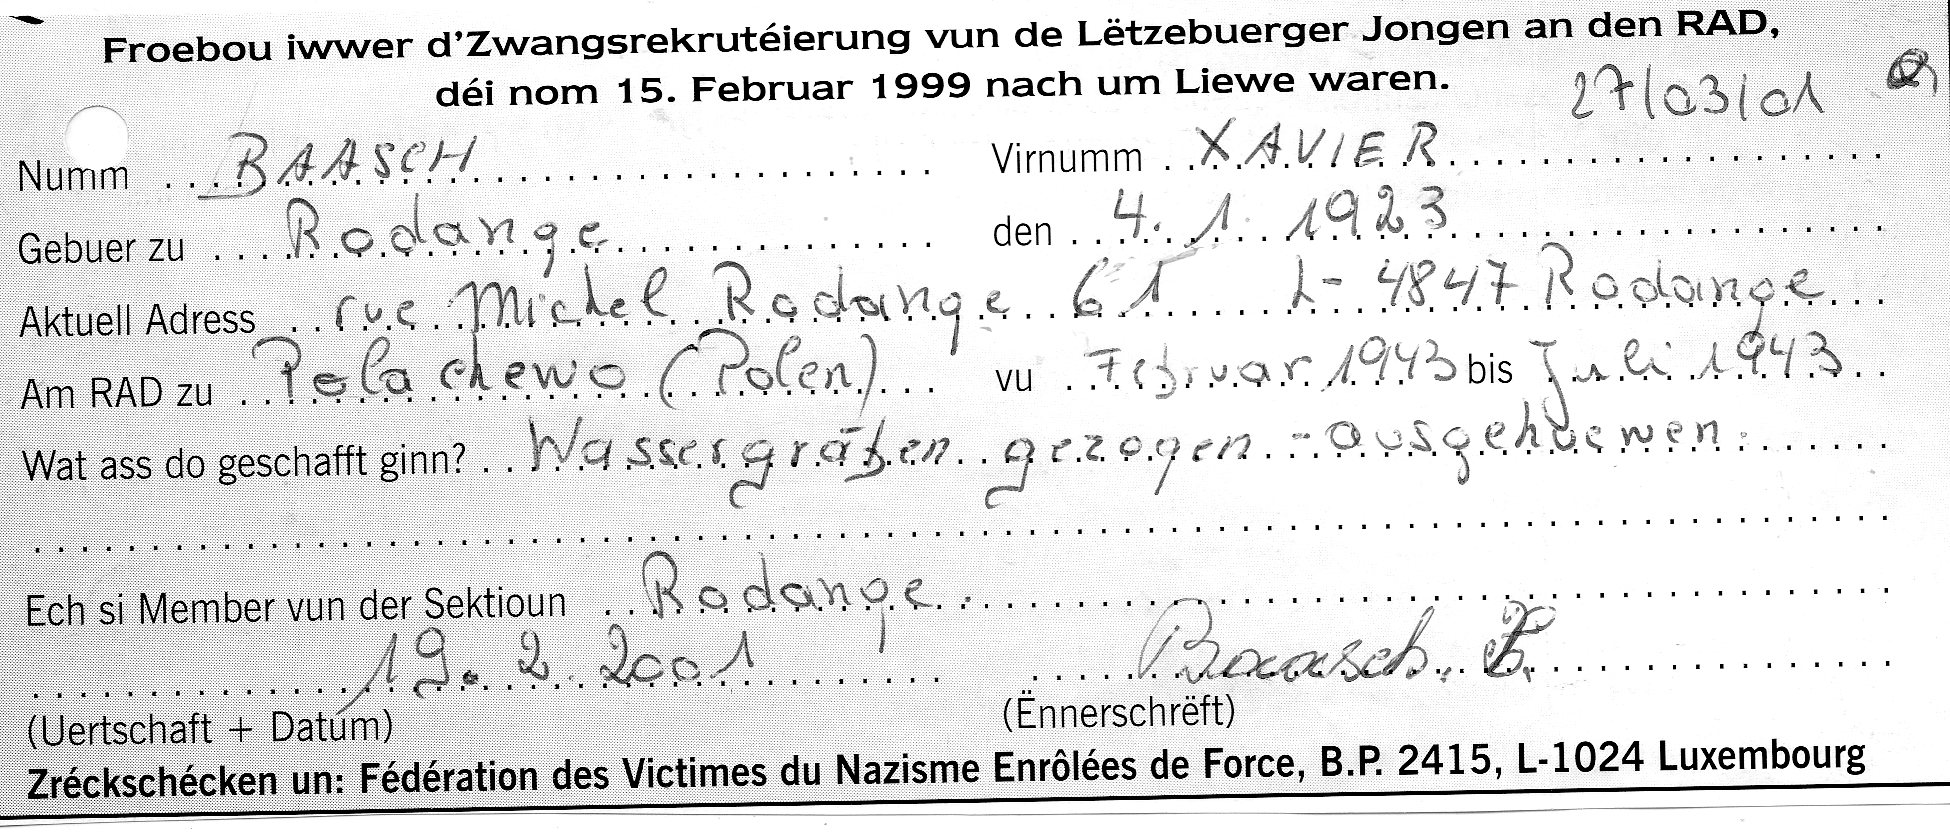 Froebou iwwer d'Zwangsrekrutéierung vun de Lëtzebuerger Jongen an den RAD,
déi nom 15. Februar 1999 nach um Liewe waren.
27/03/01
Numm BAASCH Virnumm XAVIER
Gebuer zu Rodange den 4. 1. 1923
Aktuell Adress rue Michel Rodange 61 L-4847 Rodange
Am RAD zu Polachewo (Polen) vu Februar 1943 bis Juli 1943
Wat ass do geschafft ginn? Wassergräben gezogen - ausgehuewen.
Ech si Member vun der Sektioun Rodange.
19. 2 2001 Baasch. X.
(Uertschaft + Datum) (Ënnerschrëft)
Zréckschécken un: Fédération des Victimes du Nazisme Enrôlées de Force, B.P. 2415, L-1024 Luxembourg